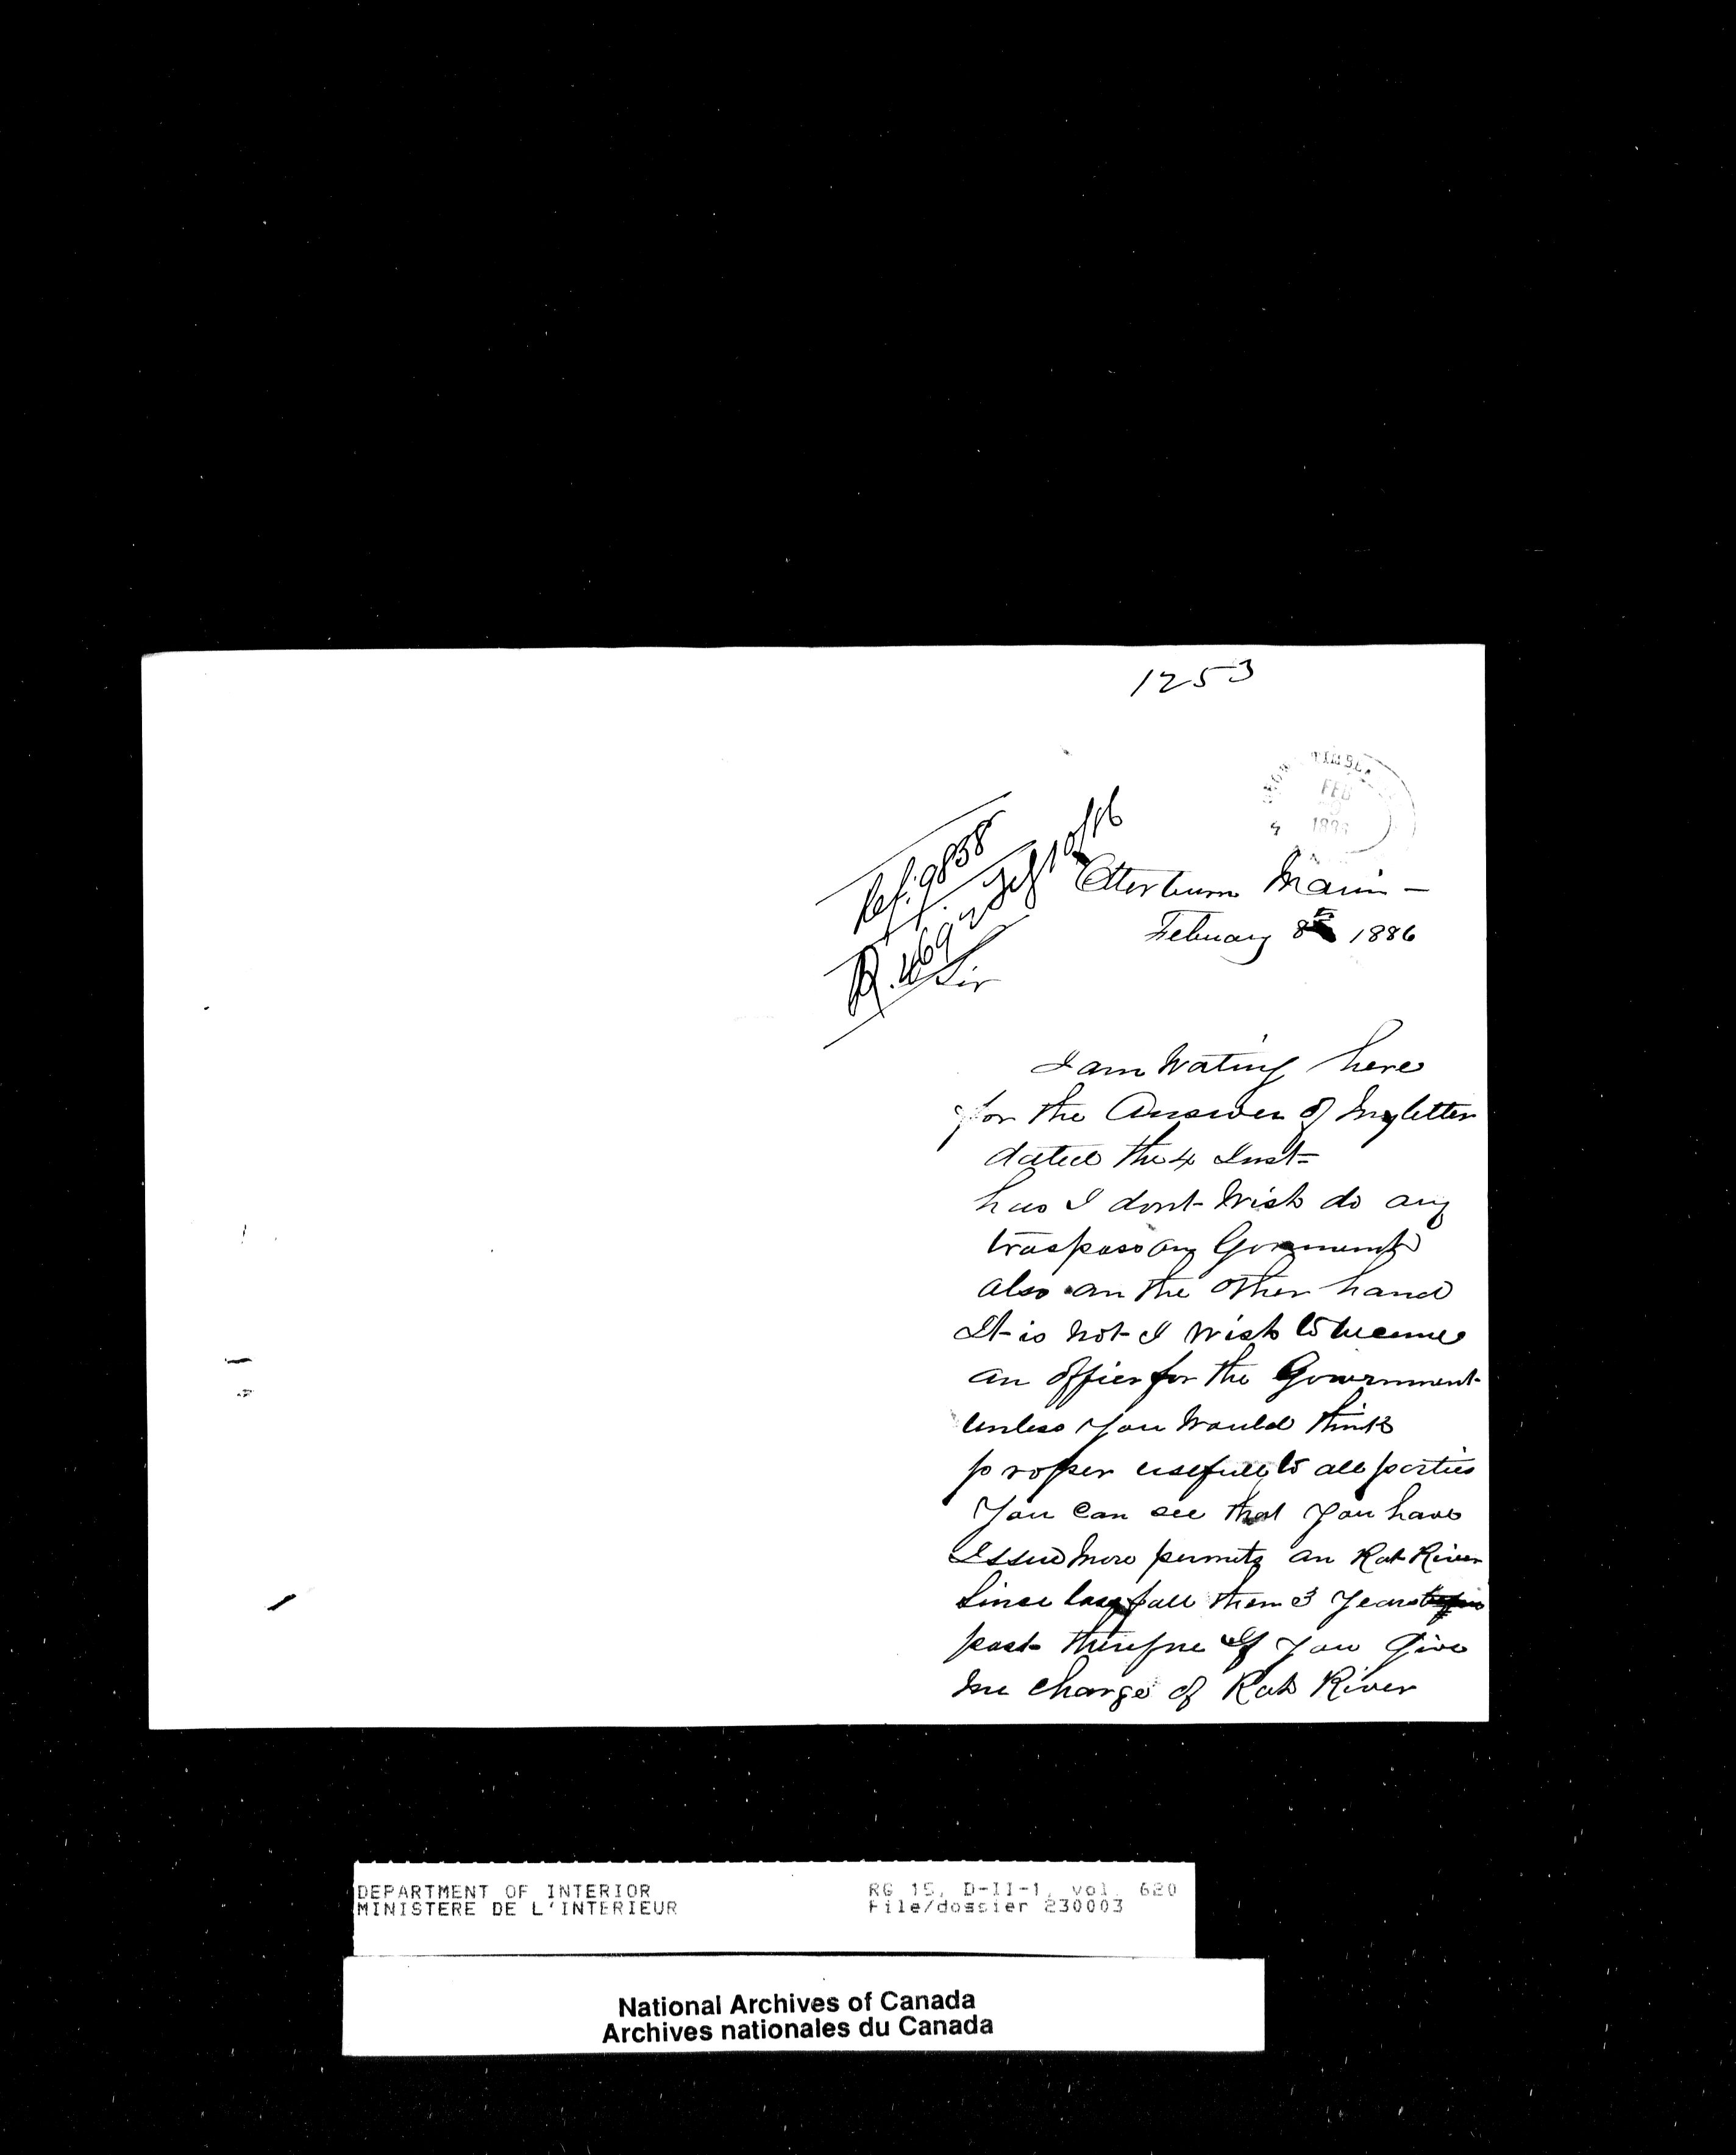 1253
FEB
1886
Ref. 9858
R. 469
Otterburn Mani -
February 8th 1886
Sir
I am Wating here
for the Answer of my letter
dated the 4 Inst=
has I dont Wish do any
traspass any Government
also an the other hand
It is not I wish to become
an officer for the Government
unless you Would think
proper usefull to all parties
You can see that you have
Issued more permits an Rat River
Since last fall them 3 Years
past therefore if you Give
me charge of Rat River
DEPARTMENT OF INTERIOR
MINISTERE DE L'INTERIEUR
RG 15, D-II-1, vol. 620
File/dossier 230003
National Archives of Canada
Archives nationales du Canada